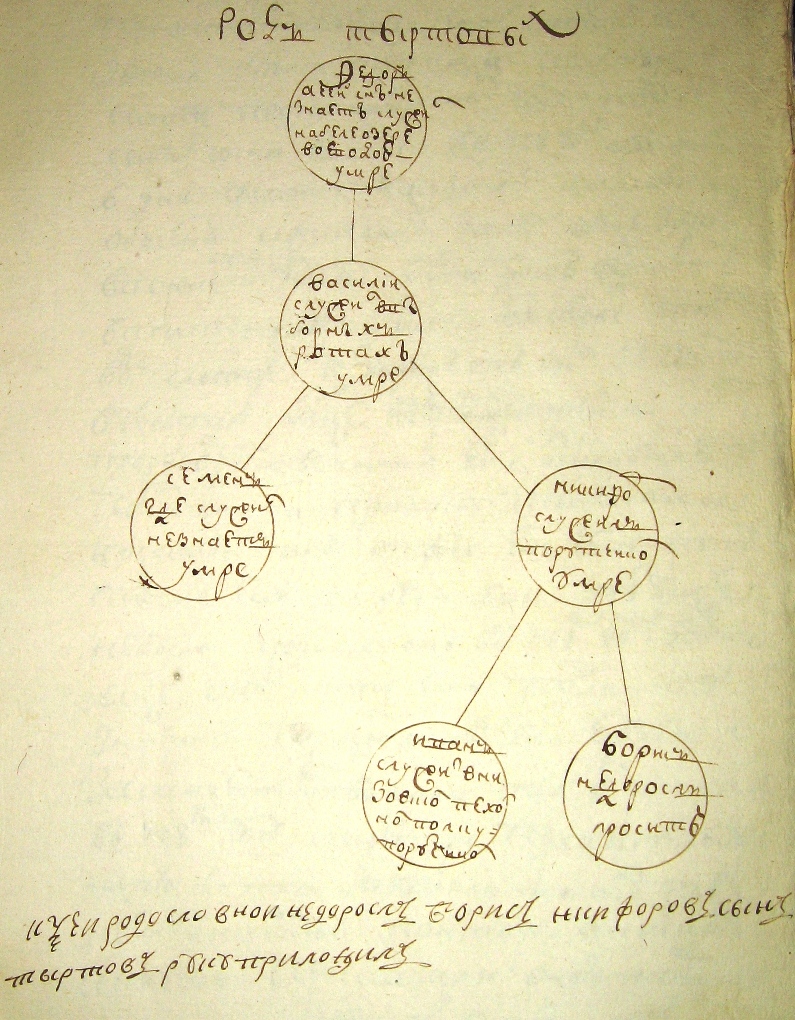 Родъ тыртовыхъ
Ѳедоръ
а чей снъ не
знаетъ служи
на белеозере
воево
умре
василiи
служи
въ
ротахъ
умре
семенъ
где служи
не знаетъ
умре
никифо
служилъ
порутчико
умре
иванъ
служи в ни
зовѣ пехо
но полку
порутчико
борисъ
недоросль
проситъ
к сей родословной недоросль Борисъ никифоровъ сынъ
тыртовъ руку приложилъ